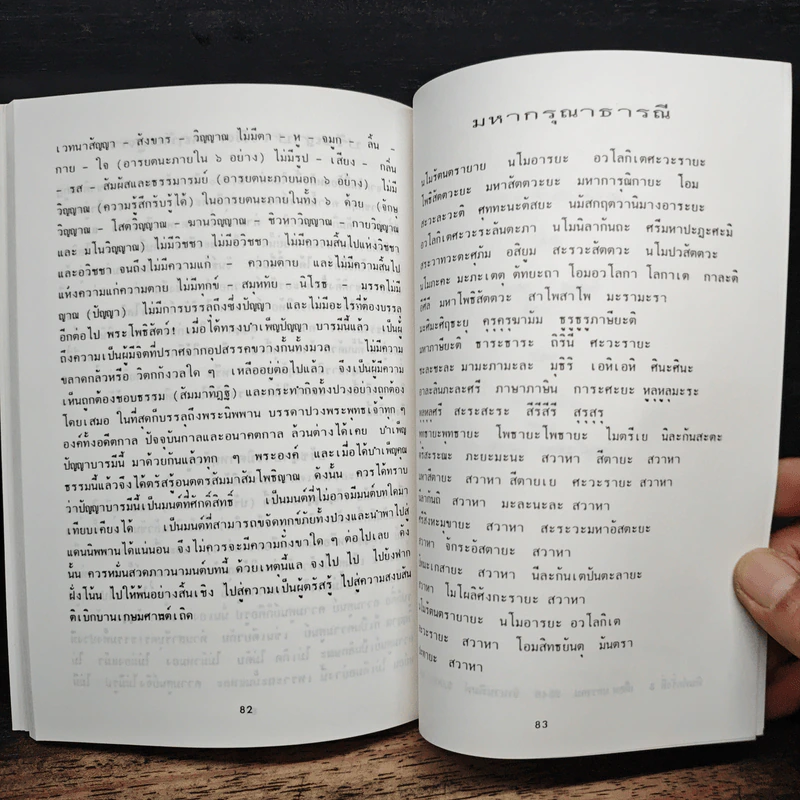 เวทนาสัญญา - สังขาร - วิญญาณ ไม่มีตา - หู - จมูก - ลิ้น -
กาย - ใจ (อารยตนะภายใน ๖ อย่าง) ไม่มีรูป - เสียง - กลิ่น
- รส - สัมผัสและธรรมารมย์ (อารยตนะภายนอก ๖ อย่าง) ไม่มี
วิญญาณ (ความรู้สึกรับรู้ได้) ในอารยตนะภายในทั้ง ๖ ด้วย (จักษุ
วิญญาณ - โสตวิญญาณ - ฆานวิญญาณ - ชิวหาวิญญาณ - กายวิญญาณ
และ มโนวิญญาณ) ไม่มีวิชชา ไม่มีอวิชชา ไม่มีความสิ้นไปแห่งวิชชา
และอวิชชา จนถึงไม่มีความแก่ - ความตาย และไม่มีความสิ้นไป
แห่งความแก่ความตาย ไม่มีทุกข์ - สมุทัย - นิโรธ - มรรคไม่มี
ญาณ (ปัญญา) ไม่มีการบรรลุถึงซึ่งปัญญา และไม่มีอะไรที่ต้องบรรลุ
อีกต่อไป พระโพธิสัตว์! เมื่อได้ทรงบำเพ็ญปัญญา บารมีนี้แล้ว เป็นผู้
ถึงความเป็นผู้มีจิตที่ปราศจากอุปสรรคขวางกั้นทั้งมวล ไม่มีความ
ขลาดกลัวหรือ วิตกกังวลใด ๆ เหลืออยู่ต่อไปแล้ว จึงเป็นผู้มีความ
เห็นถูกต้องชอบธรรม (สัมมาทิฏฐิ) และกระทำกิจทั้งปวงอย่างถูกต้อง
โดยเสมอ ในที่สุดก็บรรลุถึงพระนิพพาน บรรดาปวงพระพุทธเจ้าทุก ๆ
องค์ทั้งอดีตกาล ปัจจุบันกาลและอนาคตกาล ล้วนต่างได้เคย บำเพ็ญ
ปัญญาบารมีนี้ มาด้วยกันแล้วทุก ๆ พระองค์ และเมื่อได้บำเพ็ญคุณ
ธรรมนี้แล้วจึงได้ตรัสรู้อนุตตรสัมมาสัมโพธิญาณ ดังนั้น ควรได้ทราบ
ว่าปัญญาบารมีนี้เป็นมนต์ที่ศักดิ์สิทธิ์ เป็นมนต์ที่ไม่อาจมีมนต์บทใดมา
เทียบเคียงได้ เป็นมนต์ที่สามารถขจัดทุกข์ภัยทั้งปวงและนำพาไปสู่
แดนนิพพานได้แน่นอน จึงไม่ควรจะมีความกังขาใด ๆ ต่อไปเลย ดัง
นั้น ควรหมั่นสวดภาวนามนต์บทนี้ ด้วยเหตุนี้แล จงไป ไป ไปยังฟาก
ฝั่งโน้น ไปให้พ้นอย่างสิ้นเชิง ไปสู่ความเป็นผู้ตรัสรู้ ไปสู่ความสงบสันติ
ติเบิกบานเกษมศานต์เถิด
82
มหากรุณาธารณี
นโมรัตนตรายาย นโมอารยะ อวโลกิเตศะวะรายะ
โพธิสัตตวะยะ มหาสัตตวะยะ มหาการุณิกายะ โอม
สะวะละวะติ ศุททะนะตัสยะ นมัสกฤตวานิมางอาระยะ
อวโลกิเตศะวะระลันตะภา นโมนิลากันถะ ศรีมหาปะฏะศะมิ
สะระวาทวะตะศุภัม อสิยูม สะระวะสัตตวะ นโมปวสัตตวะ
นโมภะคะ มะภะเตตุ ตัทยะถา โอมอวโลกา โลกาเต กาละติ
อิศีลี มหาโพธิสัตตวะ สาโพสาโพ มะรามะรา
มะศิมะศิฤธะยุ คุรุคุรุฆามัม ธุรุธุรุภาษียะติ
มหาภาษียะติ ธาระธาระ ถิรินี ศะวะรายะ
ระละชะละ มามะภามะละ มุธิริ เอหิเอหิ ศินะศินะ
อาละลินภะละศรี ภาษาภาษิน การะศะยะ หุลุหุลุมะระ
หุลุหุลุศรี สะระสะระ สีริสีรี สุรุสุรุ
พุทธายะพุทธายะ โพธายะโพธายะ ไมตรีเย นิละกันสะตะ
ภะยะมะนะ สวาหา สีตายะ สวาหา
สวาหา สีตายะเย ศะวะรายะ สวาหา
สวาหา มะละนะละ สวาหา
สวาหา สะระวะมหาอัสตะยะ
สวาหา จักระอัสตายะ สวาหา
สวาหา นีละกันเตปันตะลายะ
สวาหา โมโผลิศังกะรายะ สวาหา
นโมรัตนตรายายะ นโมอารยะ อวโลกิเต
ศะวะระยะ สวาหา โอมสิทธยันตุ มันตรา
สวาหา
83